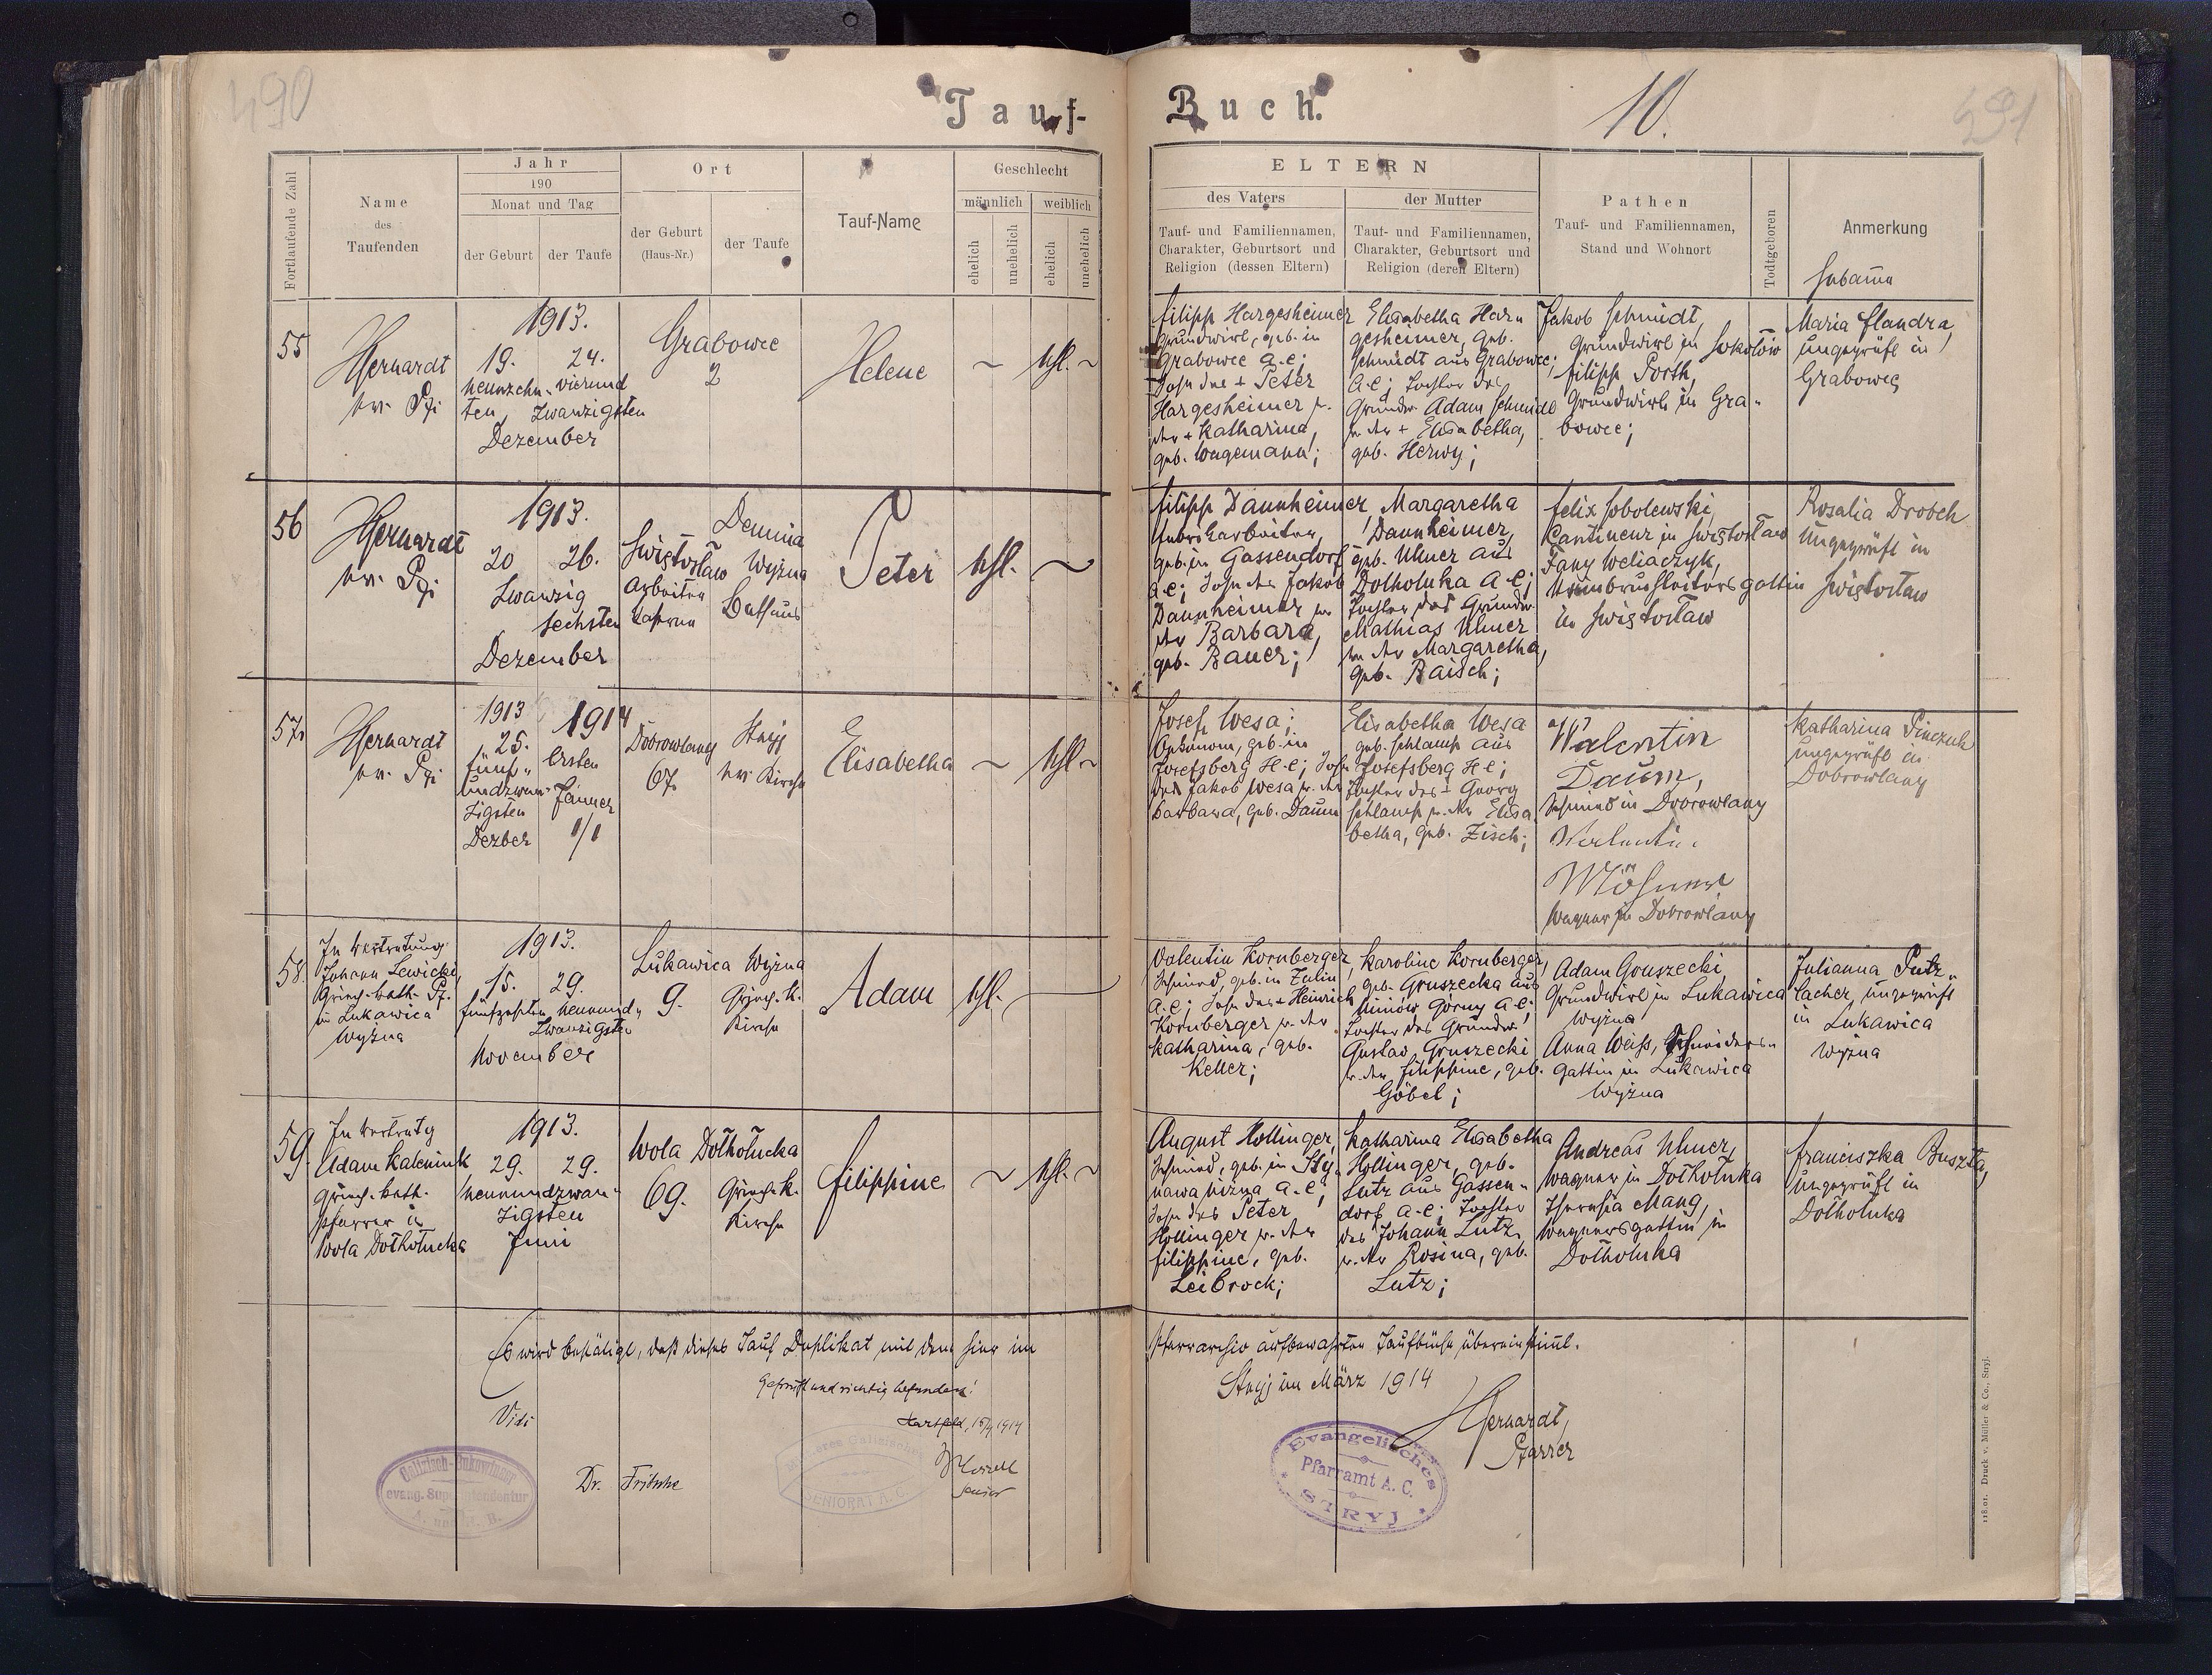 490
Tauf-
Buch.
10.
491
Fortlaufende Zahl
Name
des
Taufenden
Jahr
190
Monat und Tag
der Geburt
der Taufe
Ort
der Geburt
(Haus-Nr.)
der Taufe
Tauf-Name
Geschlecht
männlich
weiblich
ehelich
unehelich
ehelich
unehelich
ELTERN
des Vaters
der Mutter
Tauf- und Familiennamen,
Charakter, Geburtsort und
Religion (dessen Eltern)
Tauf- und Familiennamen,
Charakter, Geburtsort und
Religion (deren Eltern)
Pathen
Tauf- und Familiennamen,
Stand und Wohnort
Todtgeboren
Anmerkung
Hebamme
55
1913.
19. 24.
neunzehn- vierund
ten, zwanzigsten
Dezember
Grabowce
2
Helene
Filipp Hargesheimer
Grundwirt, geb. in
Grabowce A.C.;
Sohn des + Peter
Hargesheimer u.
der + Katharina,
geb. Wagemann;
Elisabetha Har-
gesheimer, geb.
Schmidt aus Grabowce;
A.C.; Tochter des
Grundw. Adam Schmidt
u. der + Elisabetha,
geb. Herwy;
Jakob Schmidt,
Grundwirt in Sokolow
Filipp Porth,
Grundwirt in Gra-
bowce;
Maria Flandra,
ungeprüft in
Grabowce
56
1913.
20 26.
Zwanzig
sechsten
Dezember
Demnia
Swiętosław Wyżna
Arbeiter
Kaserne Bethaus
Peter
Filipp Dannheimer,
geb. in Gassendorf
A.C.; Sohn des Jakob
Dannheimer u.
der Barbara,
geb. Bauer;
Margaretha
Dannheimer,
geb. Ulmer aus
Dołhołuka A.C.;
Tochter des Grundw.
Mathias Ulmer
u. der Margaretha,
geb. Raisch;
Felix Sobolewski,
Kantineur in Swiętosław
Fany Weliaczyk,
in Swiętosław
Rosalia Drobch
Ungeprüft in
Swiętosław
57
1913 1914
25. Ersten
fünf-
undzwan- Jänner
zigsten
Dezber 1/1
Dobrowlany Stryj
67. ev. Kirche
Elisabetha
Josef Wesa;
Ökonom, geb. in
Josefsberg H.C.; Sohn
des Jakob Wesa u. der
Barbara, geb. Daum
Elisabetha Wesa
geb. Schlamp aus
Josefsberg H.C.;
Tochter des + Georg
Schlamp u. der Elisa
betha, geb. Zisch;
Valentin
Daum,
Schmied in Dobrowlany
Wagner in Dobrowlany
Katharina Pinczuk
ungeprüft in
Dobrowlany
58.
In Vertretung
Johann Lewicki,
Griech. kath. Pf.
in Lukawica
Wyżna
1913.
15. 29.
fünfzehnten neunund-
zwanzigsten
November
Lukawica Wyżna
9. Griech. k.
Kirche
Adam
Valentin Kornberger,
Schmied, geb. in Zulin
A.C.; Sohn des + Heinrich
Kornberger u. der
Katharina, geb.
Keller;
Karoline Kornberger,
geb. Gruszecka aus
Uniów Górny A.C.;
Tochter des Grundw.
Gustav Gruszecki
u. der Filippine, geb.
Göbel;
Adam Gruszecki,
Grundwirt in Lukawica
Wyżna
Anna Weiß, Schneiders-
gattin in Lukawica
Wyżna
Julianna Putz-
lacher, ungeprüft
in Lukawica
Wyżna
59.
In Vertretg
Adam Kaleniuk
griech. kath.
Pfarrer in
Wola Dołhołucka
1913.
29. 29.
neunundzwan-
zigsten
Juni
Wola Dołhołucka
69. Griech. K.
Kirche
Filippine
August Hollinger,
Schmied, geb. in Sty-
nawa niżna A.C.;
Sohn des Peter
Hollinger u. der
Filippine, geb.
Leibrock;
Katharina Elisabetha
Hollinger, geb.
Lutz aus Gassen-
dorf A.C.; Tochter
des Johann Lutz
u. der Rosina, geb.
Lutz;
Andreas Ulmer,
Wagner in Dołhołuka
Theresia Mang,
Wagnersgattin in
Dołhołuka
Franciszka Buszta,
Ungeprüft in
Dołhołuka
Es wird bestätigt, daß dieses Tauf Duplikat mit dem hier im
Pfarrarchiv aufbewahrten Taufbuche übereinstimt.
Geprüft und richtig befunden!
Stryj im März 1914
Vidi
Hartfeld, 15/4 1914
Pfarrer
Dr. Fritsche
Senior
Galizisch-Bukowinaer
evang. Superintendentur
A. und H. B.
SENIORAT A.C.
Evangelisches
Pfarramt A. C.
STRYJ
Druck v. Müller & Co., Stryj.